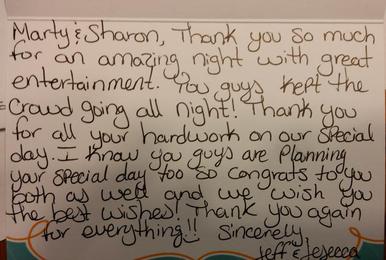 Marty & Sharon, Thank you so much
for an amazing night with great
entertainment. You guys kept the
crowd going all night! Thank you
for all your hardwork on our special
day. I know you guys are planning
your special day too so congrats to you
both as well and we wish you
the best wishes! Thank you again
for everything!! Sincerely
Jeff &